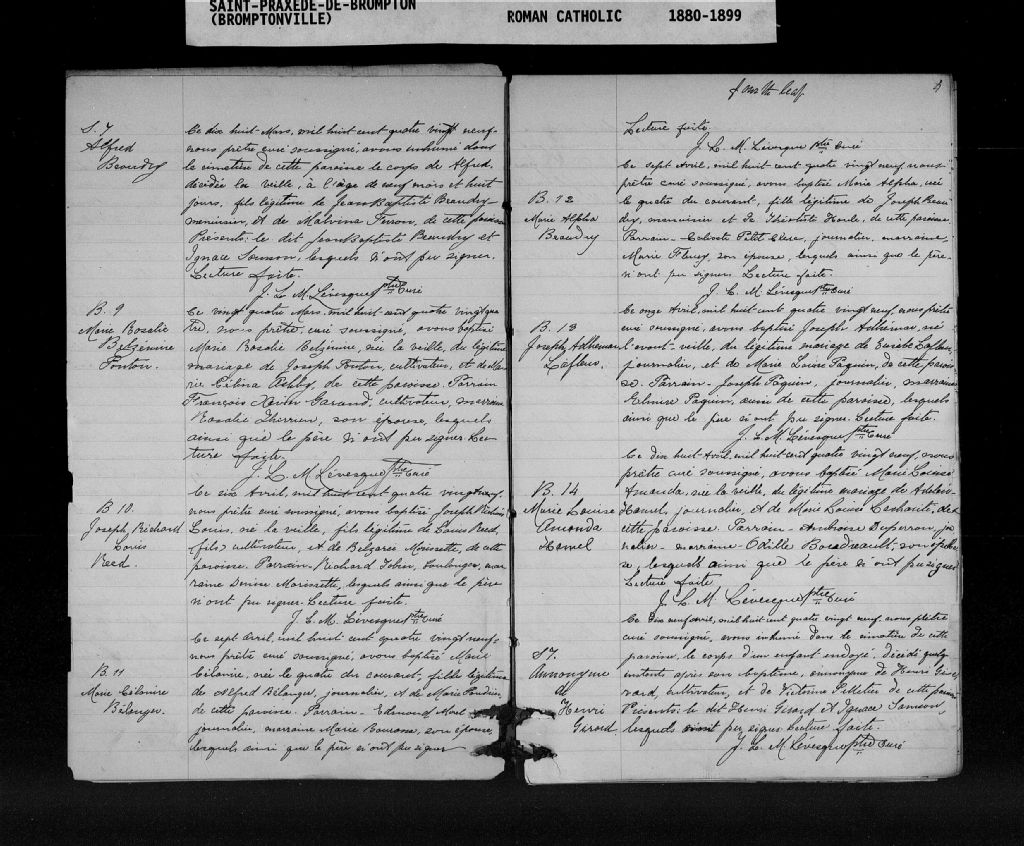 SAINT-PRAXEDE-DE-BROMPTON
(BROMPTONVILLE)
ROMAN CATHOLIC 1880-1899
S. 7
Alfred
Beaudry
Ce dix huit Mars, mil huit cent quatre vingt neuf
nous prêtre curé soussigné, avons inhumé dans
le cimetière de cette paroisse le corps de Alfred,
décédée la veille, à l'âge de neuf mois et huit
jours, fils légitime de Jean Baptiste Beaudry
menuisier, et de Malvina, de cette paroisse
Présents: le dit Jean Baptiste Beaudry et
Ignace Samson, lesquels n'ont pu signer.
Lecture faite.
J. L. M. Lévesque ptre Curé
B. 9
Marie Rosalie
Belzemire
Fonton.
Ce vingt quatre Mars, mil huit cent quatre vingt neuf
nous prêtre curé soussigné, avons baptisé
Marie Rosalie Belzimire, née la veille, du légitime
mariage de Joseph Fonton, cultivateur, et de Ma-
rie Célina Ashby, de cette paroisse. Parrain
François Xavier Garand, cultivateur, marraine
Rosalie Therrien, son épouse, lesquels
ainsi que le père n'ont pu signer. Lec-
ture faite.
J. L. M. Lévesque ptre Curé
B. 10.
Joseph Richard
Louis
Reed.
Ce six Avril, mil huit cent quatre vingt neuf,
nous prêtre curé soussigné, avons baptisé Joseph Richard
Louis, né la veille, fils légitime de Louis Reed,
(fils) cultivateur, et de Belzarée Morissette, de cette
paroisse. Parrain Richard Tobin, boulanger, mar
raine Denise Morissette, lesquels ainsi que le père
n'ont pu signer. Lecture faite.
J. L. M. Lévesque ptre Curé
B. 11
Marie Célanire
Bélanger.
Ce sept Avril, mil huit cent quatre vingt neuf
nous prêtre curé soussigné, avons baptisé Marie
Célanire, née le quatre du courant, fille légitime
de Alfred Bélanger, journalier, et de Marie,
de cette paroisse. Parrain Edmond Morel
journalier, marraine Marie, son épouse,
lesquels ainsi que le père n'ont pu signer
fourth leaf
4
Lecture faite.
J. L. M. Lévesque ptre Curé
B. 12
Marie Alpha
Beaudry
Ce sept Avril, mil huit cent quatre vingt neuf nous
prêtre curé soussigné, avons baptisé Marie Alpha, née
le quatre du courant, fille légitime de Joseph Beau
dry, menuisier et de Théotiste Houle, de cette paroisse
Parrain Calixte Petit Clerc, journalier, marraine,
Marie Fleury, son épouse, lesquels ainsi que le père
n'ont pu signer Lecture faite.
J. L. M. Lévesque ptre Curé
B. 13
Joseph Adhémar
Lafleur.
Ce onze Avril, mil huit cent quatre vingt neuf, nous prêtre
curé soussigné, avons baptisé Joseph Adhémar, né
l'avant-veille, du légitime mariage de Eusèbe Lafleur,
journalier, et de Marie Louise Paquin, de cette parois
se. Parrain Joseph Paquin, journalier, marraine
Elmire Paquin, aussi de cette paroisse, lesquels
ainsi que le père n'ont pu signer. Lecture faite.
J. L. M. Lévesque ptre Curé
B. 14
Marie Louise
Amanda
Hamel
Ce dix huit Avril, mil huit cent quatre vingt neuf, nous
prêtre curé soussigné, avons baptisé Marie Louise
Amanda, née la veille, du légitime mariage de
Hamel, journalier, et de Marie Louise, de
cette paroisse. Parrain Ambroise Duperron, jour
nalier, marraine Odille Boudreault, son épou
se, lesquels ainsi que le père n'ont pu signer
Lecture faite
J. L. M. Lévesque ptre Curé
S 7.
Annonyme
de
Henri
Girard
Ce dix neuf Avril, mil huit cent quatre vingt neuf nous prêtre
curé soussigné, avons inhumé dans le cimetière de cette
paroisse, le corps d'un enfant ondoyé, décédé quelq
instants après son baptême, annonyme de Henri Gi
rard, cultivateur, et de Victorine Pelletier de cette paroisse
Présents: le dit Henri Girard et Ignace Samson,
lesquels n'ont pu signer Lecture faite.
J. L. M. Lévesque ptre Curé